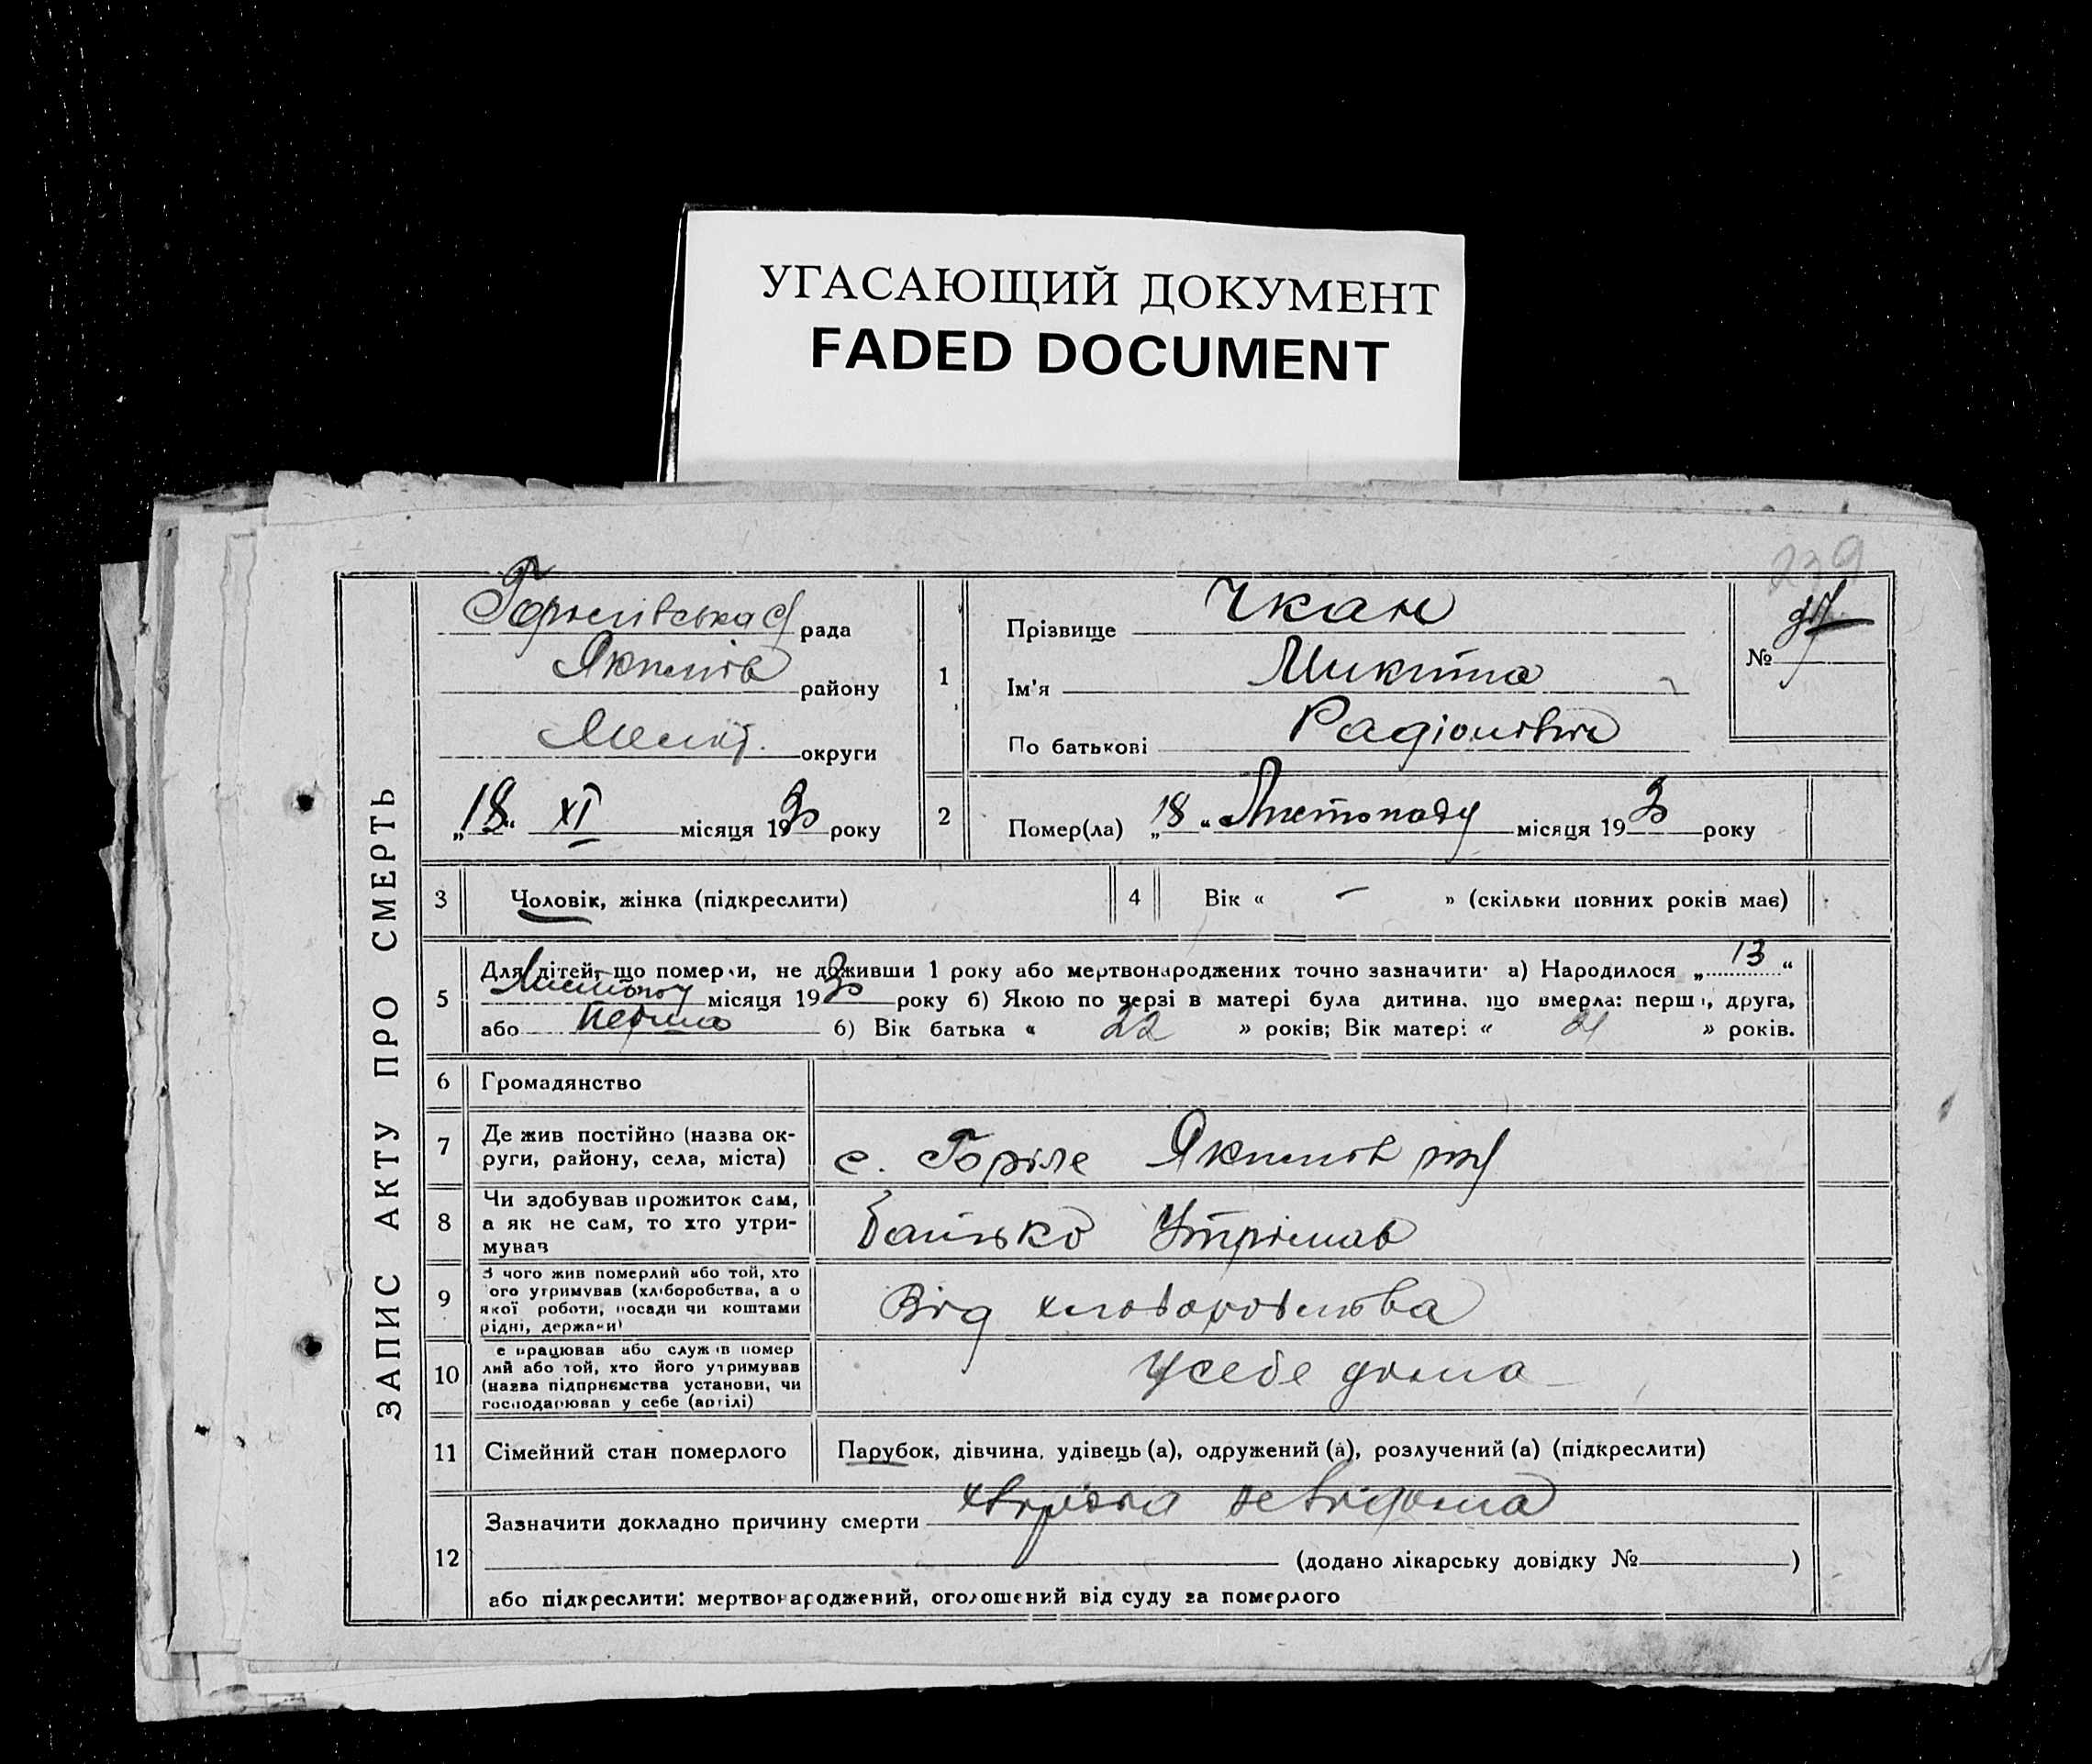 УГАСАЮЩИЙ ДОКУМЕНТ
FADED DOCUMENT
239
ЗАПИС АКТУ ПРО СМЕРТЬ
рада
Якимів району
Меліт. округи
„18“ XI місяця 1930 року
№
1
Прізвище Чкан
Ім'я Микита
По батькові Радіонович
2
Помер(ла) „18“ Листопаду місяця 1930 року
3
Чоловік, жінка (підкреслити)
4
Вік « – » (скільки повних років має)
5
Для дітей, що померли, не доживши 1 року або мертвонароджених точно зазначити: а) Народилося „13“
Листопад місяця 1930 року б) Якою по черзі в матері була дитина, що вмерла: перша, друга,
або перша 6) Вік батька « 22 » років; Вік матері « 21 » років.
6
Громадянство
7
Де жив постійно (назва ок-
руги, району, села, міста)
с. Горіле Якимів
8
Чи здобував прожиток сам,
а як не сам, то хто утри-
мував
батько Утрімав
9
З чого жив померлий або той, хто
ого утримував (хліборобства, а о
якої роботи, посади чи коштами
рідні, держави)
Від хліборобства
10
е працював або служив помер
лий або той, хто його утримував
(назва підприємства установи, чи
господарював у себе (артілі)
У себе дома
11
Сімейний стан померлого
Парубок, дівчина, удівець (а), одружений (а), розлучений (а) (підкреслити)
12
Зазначити докладно причину смерти невідома
(додано лікарську довідку № )
або підкреслити: мертвонароджений, оголошений від суду за померлого